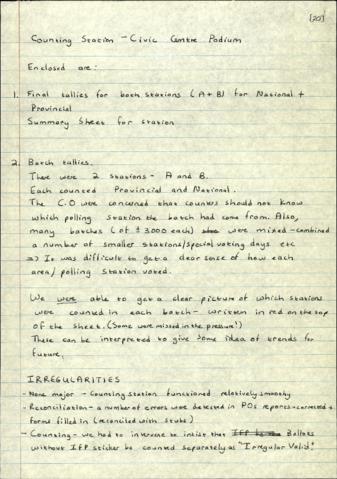 (20)
Counting Station - Civic Centre Podium
Enclosed are:
1. Final tallies for both stations (A + B) for National +
Provincial
Summary Sheet for station
2. Batch tallies.
There were 2 stations - A and B.
Each counted Provincial and National.
The C.O were concerned that counters should not know
which polling station the batch had come from. Also,
many batches (of ± 3000 each) were mixed - combined
a number of smaller stations/special voting days etc
=> It was difficult to get a clear sense of how each
area/polling station voted.
We were able to get a clear picture of which stations
were counted in each batch - written in red on the top
of the sheet. (Some were missed in the pressure!)
These can be interpreted to give some idea of trends for
future.
IRREGULARITIES
- None major - Counting station functioned relatively smoothly
- Reconciliation - a number of errors were detected in POs reports - corrected +
forms filled in (reconciled with stubs)
- Counting - we had to intervene to insist that Ballots
without IFP sticker be counted separately as "Irregular Valid".